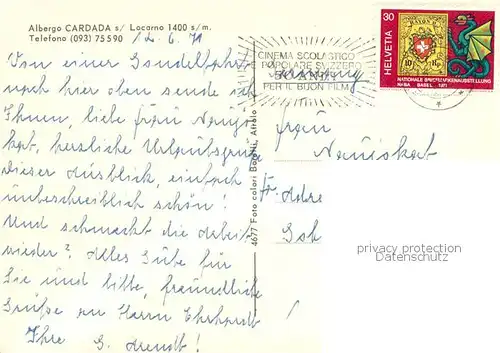 Albergo CARDADA s/ Locarno 1400 s/m.
Telefono (093) 75590
12.6.71
Von einer Gondelfahrt
nach hier oben sende ich
Ihnen, liebe Frau
herzliche Urlaubsgrüße
dieser Ausblick, einfach
unbeschreiblich schön!
Und schmeckt die Arbeit
wieder? Alles Gute für
Sie und bitte, freundliche
Grüße an Herrn Ehrhardt
Ihre
G. Arendt!
4677 Foto colori Borelli, Airolo
CINEMA SCOLASTICO
POPOLARE SVIZZERO
50 ANNI
PER IL BUON FILM
30
HELVETIA
NATIONALE BRIEFMARKENAUSSTELLUNG
NABA BASEL 1971
RAYON II
10 Rp.
Frau
privacy protection
Datenschutz